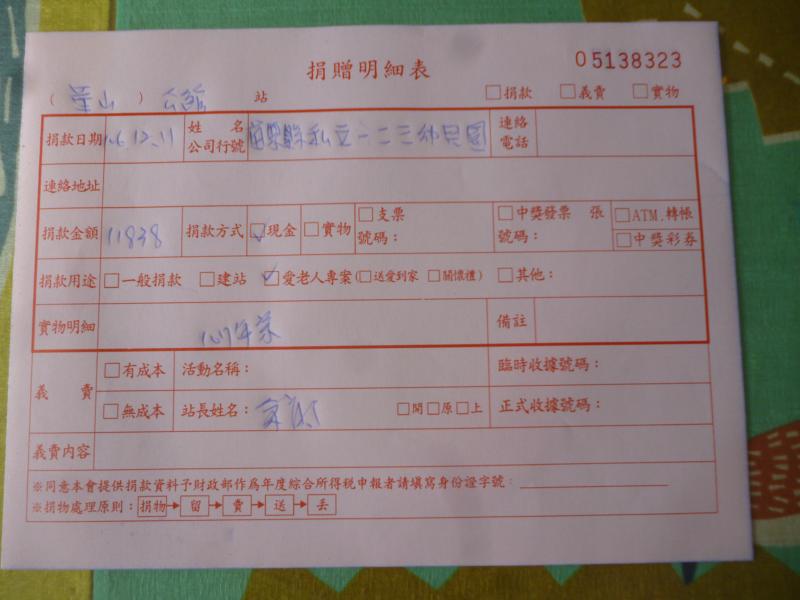 捐贈明細表 05138323
( 山 ) 站 □捐款 □義賣 □實物
捐款日期 106.12.11 姓名 公司行號 苗栗縣私立一二三幼兒園 連絡電話
連絡地址
捐款金額 11838 捐款方式 ☑現金 □實物 □支票 號碼： □中獎發票 張 號碼： □ATM.轉帳 □中獎彩券
捐款用途 □一般捐款 □建站 ☑愛老人專案(□送愛到家 □關懷禮) □其他：
實物明細 年菜 備註
義賣 □有成本 活動名稱： 臨時收據號碼：
□無成本 站長姓名： □開□原□上 正式收據號碼：
義賣內容
※同意本會提供捐款資料予財政部作為年度綜合所得稅申報者請填寫身份證字號：
※捐物處理原則：捐物→留→賣→送→丟